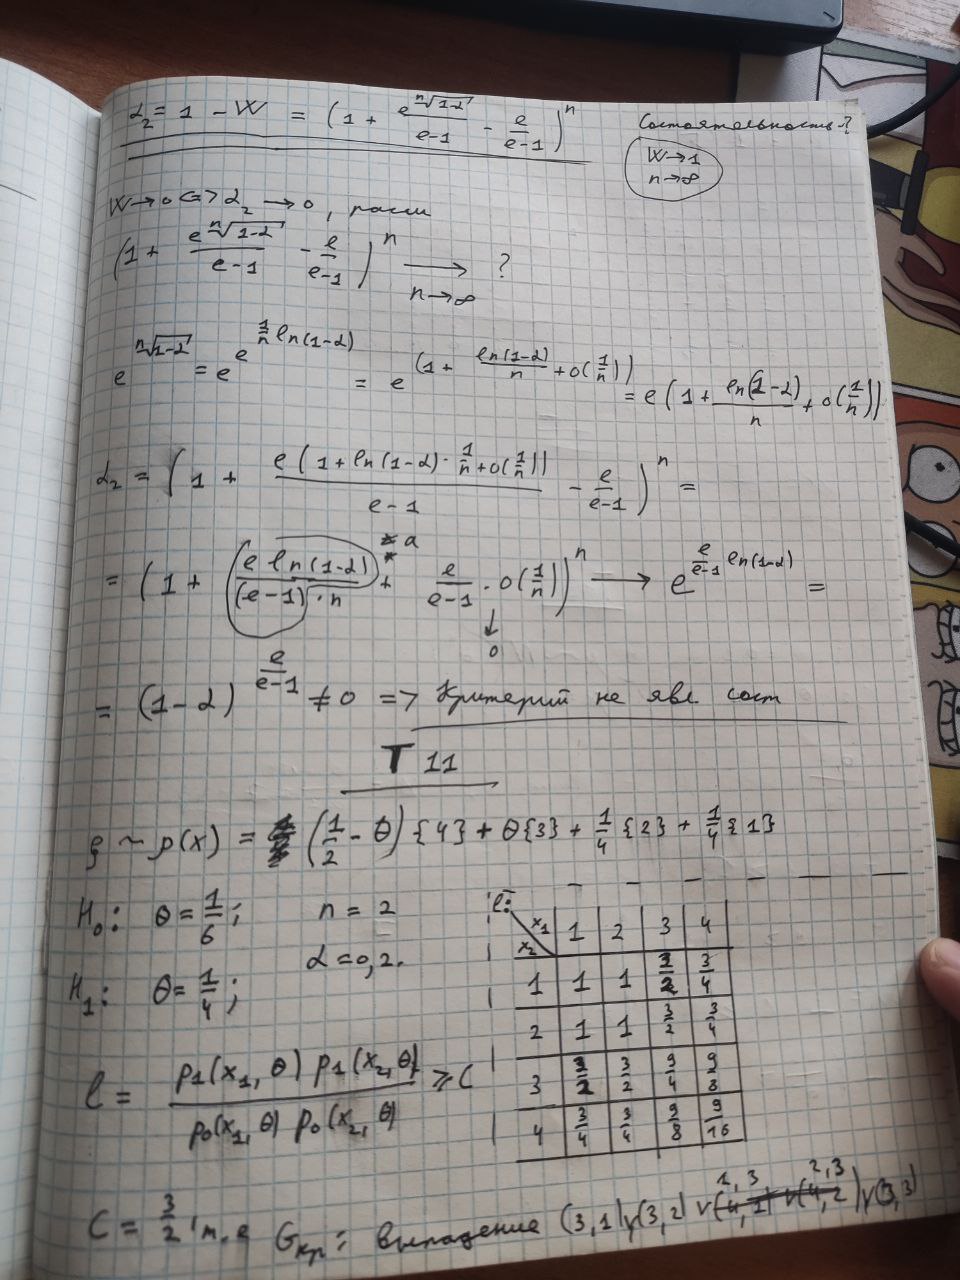 α₂ = 1 - W = (1 + e^{ⁿ√(1-α)}/(e-1) - e/(e-1))ⁿ
Состоятельность?
W → 1
n → ∞
W → 0 <=> α₂ → 0, расси
(1 + e^{ⁿ√(1-α)}/(e-1) - e/(e-1))ⁿ → ?
n → ∞
e^{ⁿ√(1-α)} = e^{e^{1/n ln(1-α)}} = e^{(1 + ln(1-α)/n + o(1/n))} = e(1 + ln(1-α)/n + o(1/n))
α₂ = (1 + e(1 + ln(1-α)·1/n + o(1/n))/(e-1) - e/(e-1))ⁿ =
= (1 + e ln(1-α)/((e-1)·n) + e/(e-1) · o(1/n))ⁿ → e^{e/(e-1) ln(1-α)} =
a
↓
0
= (1-α)^{e/(e-1)} ≠ 0 => Критерий не явл сост
T 11
ξ ~ p(x) = (1/2 - θ){4} + θ{3} + 1/4{2} + 1/4{1}
H₀: θ = 1/6; n = 2
α = 0,2.
H₁: θ = 1/4;
l = p1(x₁, θ) p1(x₂, θ) / p₀(x₁, θ) p₀(x₂, θ) ⩾ C
l:
x₂ \ x₁ 1 2 3 4
1 1 1 3/2 3/4
2 1 1 3/2 3/4
3 3/2 3/2 9/4 9/8
4 3/4 3/4 9/8 9/16
C = 3/2, т.е Gкр: выпадение (3,1) v (3,2) v (4,1) 1,3 v (4,2) 2,3 v (3,3)